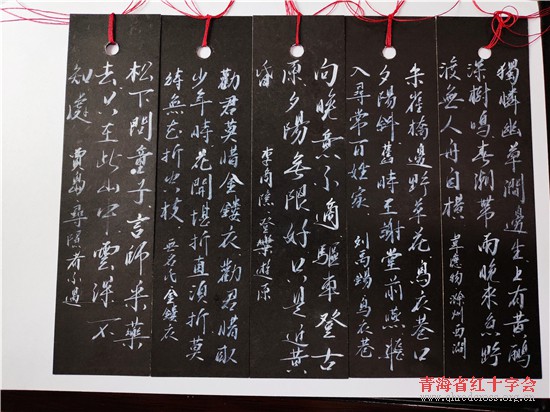 獨憐幽草澗邊生上有黃鸝
深樹鳴春潮帶雨晚來急野
渡無人舟自橫 韋應物 滁州西澗
朱雀橋邊野草花烏衣巷口
夕陽斜舊時王謝堂前燕飛
入尋常百姓家 劉禹錫 烏衣巷
向晚意不適驅車登古
原夕陽無限好只是近黃
昏 李商隱 登樂遊原
勸君莫惜金縷衣勸君惜取
少年時花開堪折直須折莫
待無花折空枝 無名氏 金縷衣
松下問童子言師采藥
去只在此山中雲深不
知處 賈島 尋隱者不遇
青海省红十字会
www.qhredcross.org.cn